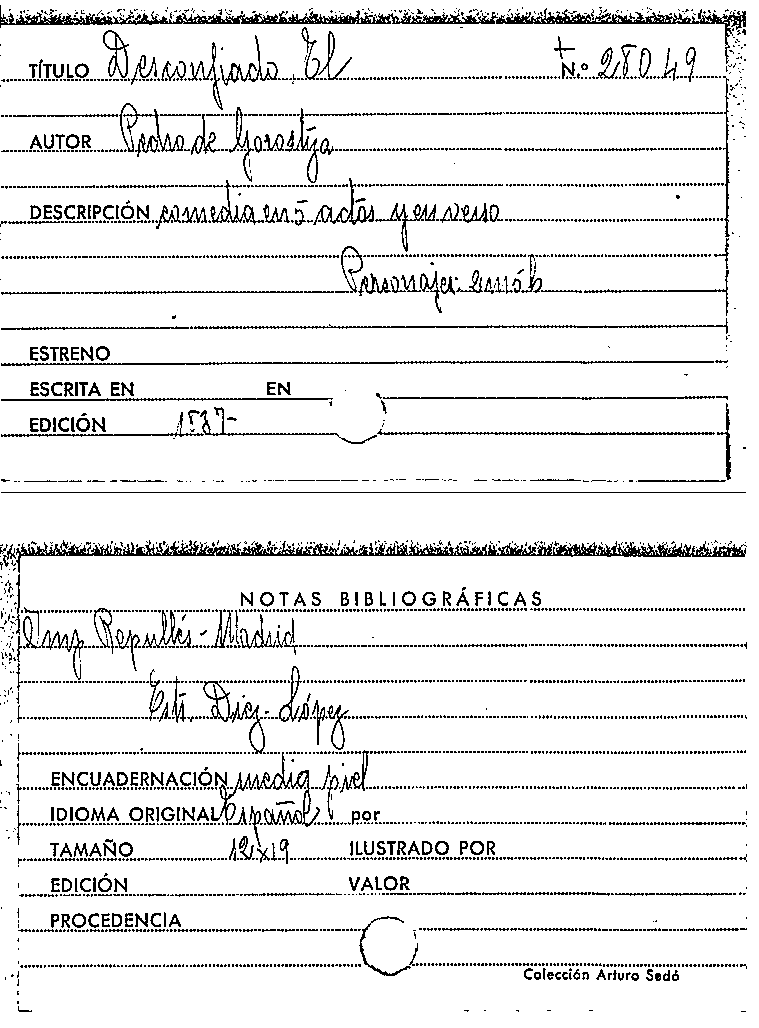 TÍTULO Desconfiado, El N.º 28049
AUTOR Pedro de Gorostiza
DESCRIPCIÓN comedia en 5 actos y en verso
Personajes:
ESTRENO
ESCRITA EN EN
EDICIÓN
NOTAS BIBLIOGRÁFICAS
Imp Repullés - Madrid
Diez - López
ENCUADERNACIÓN media piel
IDIOMA ORIGINAL Español por
TAMAÑO 12x19 ILUSTRADO POR
EDICIÓN VALOR
PROCEDENCIA
Colección Arturo Sedó